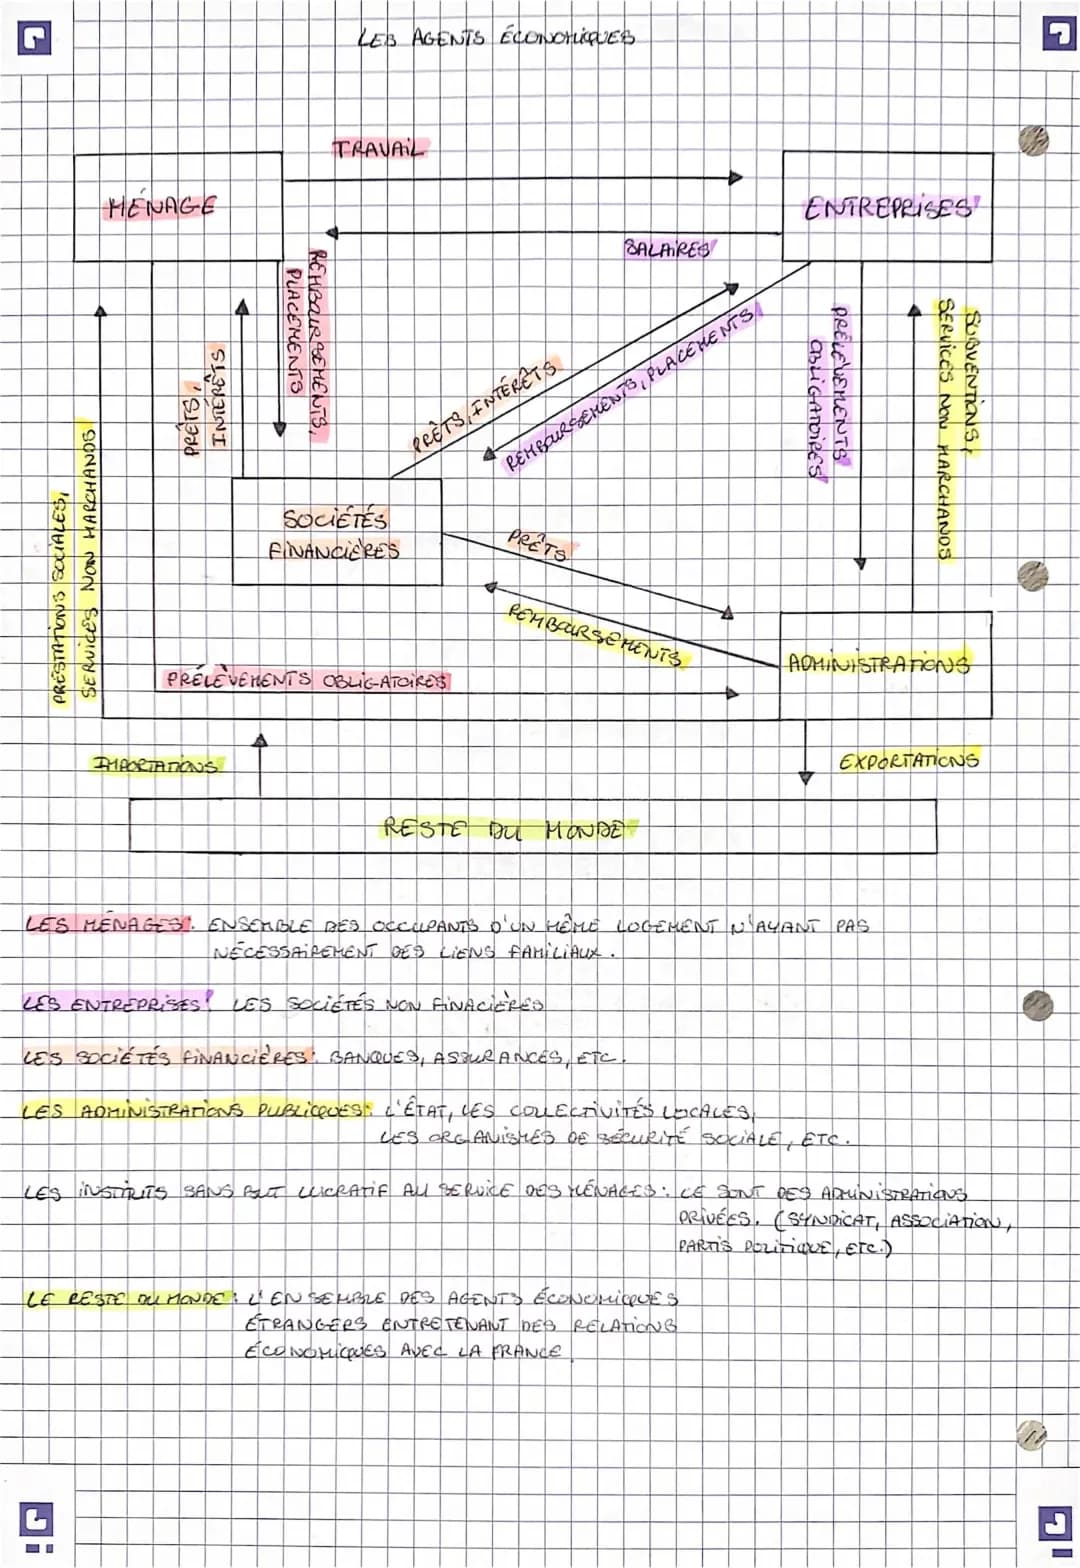 LES AGENTS ÉCONOMIQUES
TRAVAIL
MÉNAGE
ENTREPRISES
SALAIRES
REMBOURSEMENTS,
PLACEMENTS
PRÊTS,
INTÉRÊTS
PRÊTS, INTÉRÊTS
REMBOURSEMENTS, PLACEMENTS
PRÉLÈVEMENTS
OBLIGATOIRES
SUBVENTIONS,
SERVICES NON MARCHANDS
PRESTATIONS SOCIALES,
SERVICES NON MARCHANDS
SOCIÉTÉS
FINANCIÈRES
PRÊTS
REMBOURSEMENTS
ADMINISTRATIONS
PRÉLÈVEMENTS OBLIGATOIRES
IMPORTATIONS
EXPORTATIONS
RESTE DU MONDE
LES MÉNAGES: ENSEMBLE DES OCCUPANTS D'UN MÊME LOGEMENT N'AYANT PAS
NÉCESSAIREMENT DES LIENS FAMILIAUX.
LES ENTREPRISES: LES SOCIÉTÉS NON FINACIÈRES
LES SOCIÉTÉS FINANCIÈRES: BANQUES, ASSURANCES, ETC.
LES ADMINISTRATIONS PUBLICQUES: L'ÉTAT, LES COLLECTIVITÉS LOCALES,
LES ORGANISMES DE SÉCURITÉ SOCIALE, ETC.
LES INSTITUTS SANS BUT LUCRATIF AU SERVICE DES MÉNAGES: CE SONT DES ADMINISTRATIONS
PRIVÉES. (SYNDICAT, ASSOCIATION,
PARTIS POLITIQUE, ETC.)
LE RESTE DU MONDE: L'ENSEMBLE DES AGENTS ÉCONOMICQUES
ÉTRANGERS ENTRETENANT DES RELATIONS
ÉCONOMICQUES AVEC LA FRANCE